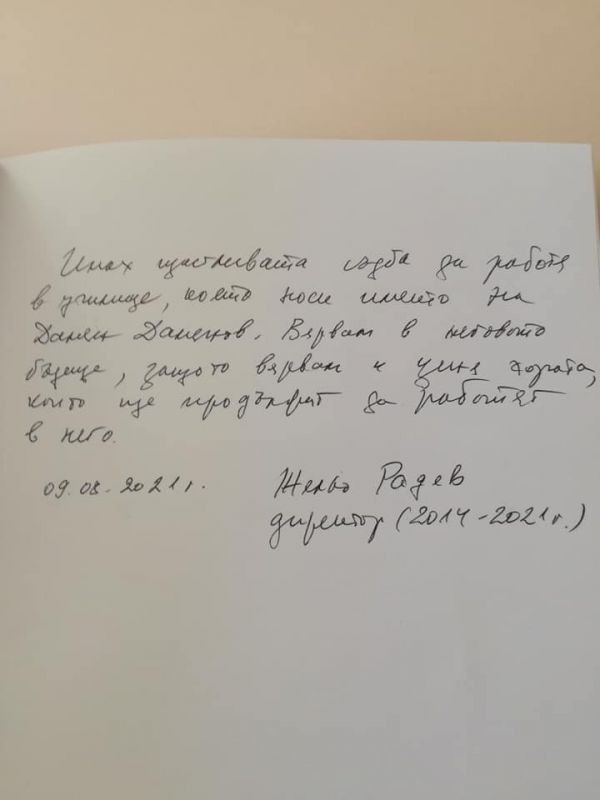 Имах щастливата съдба да работя
в училище, което носи името на
Дамян Дамянов. Вярвам в неговото
бъдеще, защото вярвам и ценя хората,
които ще продължат да работят
в него.
09.08.2021г.
Жельо Радев
директор (2014-2021г.)